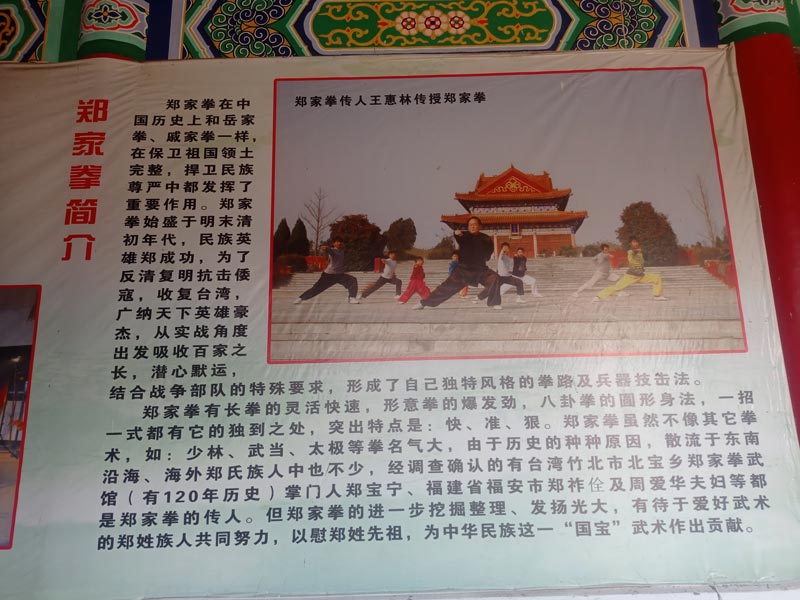 郑家拳简介
郑家拳传人王惠林传授郑家拳
郑家拳在中
国历史上和岳家
拳、戚家拳一样，
在保卫祖国领土
完整，捍卫民族
尊严中都发挥了
重要作用。郑家
拳始盛于明末清
初年代，民族英
雄郑成功，为了
反清复明抗击倭
寇，收复台湾，
广纳天下英雄豪
杰，从实战角度
出发吸收百家之
长，潜心默运，
结合战争部队的特殊要求，形成了自己独特风格的拳路及兵器技击法。
郑家拳有长拳的灵活快速，形意拳的爆发劲，八卦拳的圆形身法，一招
一式都有它的独到之处，突出特点是：快、准、狠。郑家拳虽然不像其它拳
术，如：少林、武当、太极等拳名气大，由于历史的种种原因，散流于东南
沿海、海外郑氏族人中也不少，经调查确认的有台湾竹北市北宝乡郑家拳武
馆（有120年历史）掌门人郑宝宁、福建省福安市郑祚佺及周爱华夫妇等都
是郑家拳的传人。但郑家拳的进一步挖掘整理、发扬光大，有待于爱好武术
的郑姓族人共同努力，以慰郑姓先祖，为中华民族这一“国宝”武术作出贡献。